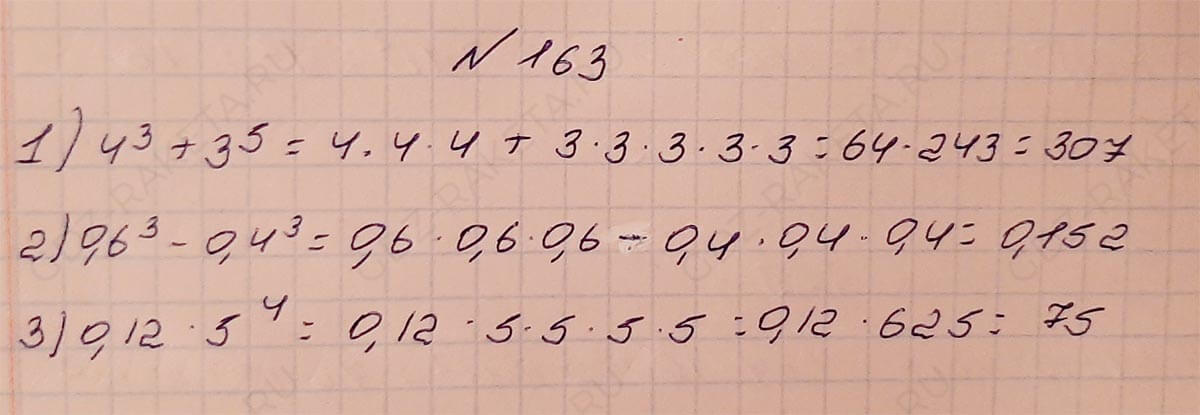 N 163
1) 4³ + 3⁵ = 4 · 4 · 4 + 3 · 3 · 3 · 3 · 3 = 64 · 243 = 307
2) 0,6³ - 0,4³ = 0,6 · 0,6 · 0,6 - 0,4 · 0,4 · 0,4 = 0,152
3) 0,12 · 5⁴ = 0,12 · 5 · 5 · 5 · 5 = 0,12 · 625 = 75